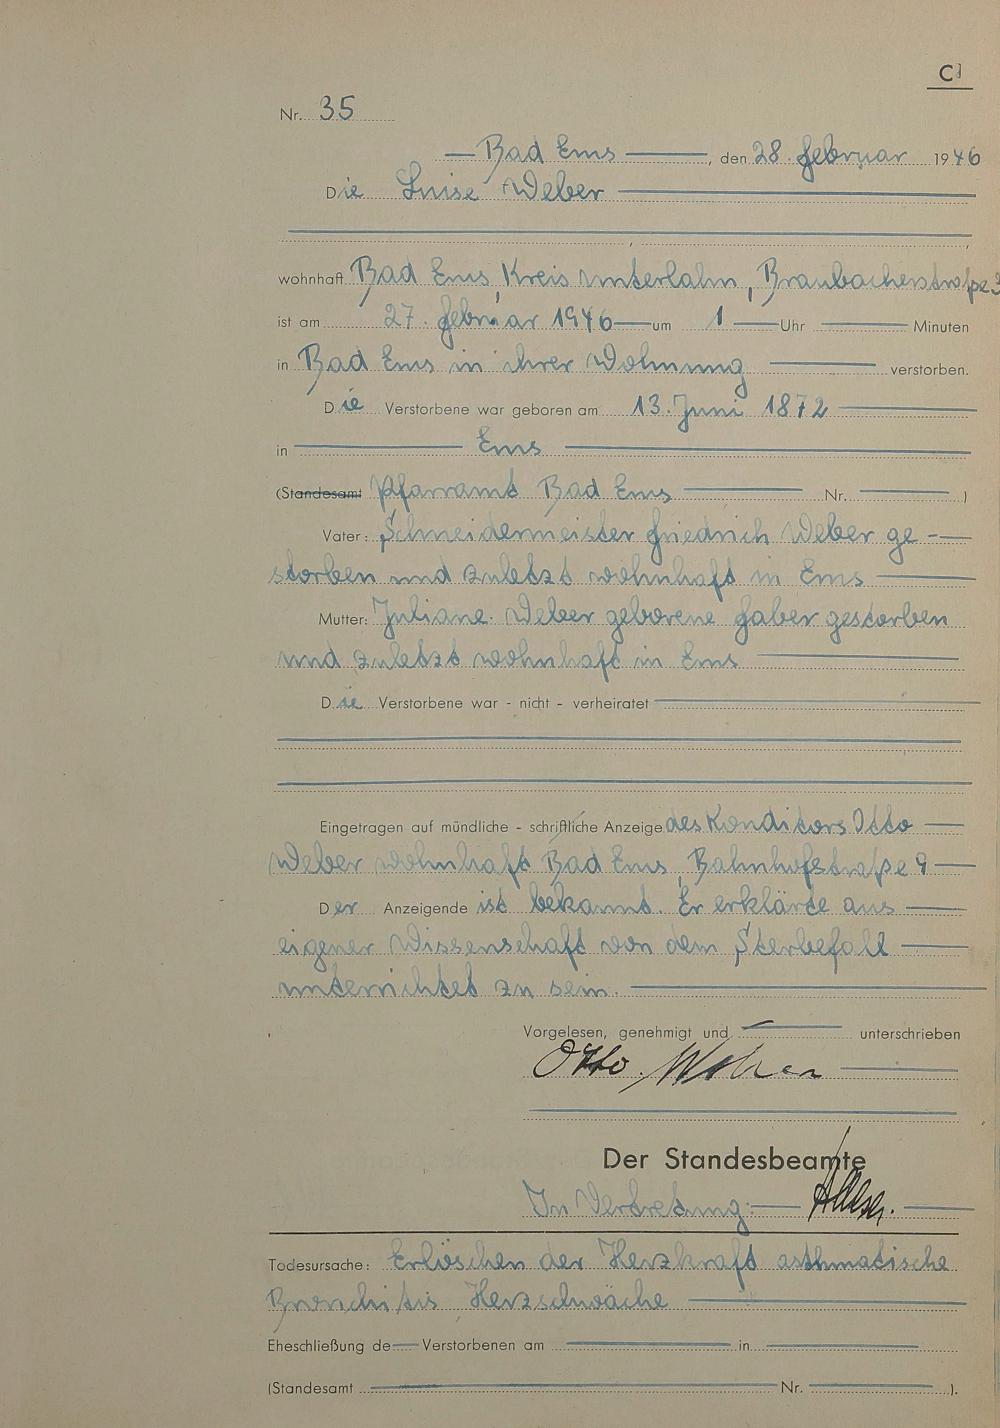 C
Nr. 35
Bad Ems, den 28. Februar 1946
Die Luise Weber
wohnhaft Bad Ems, Kreis Unterlahn, Braubacherstraße
ist am 27. Februar 1946 um 1 Uhr Minuten
in Bad Ems in ihrer Wohnung verstorben.
Die Verstorbene war geboren am 13. Juni 1872
in Ems
(Standesamt Pfarramt Bad Ems Nr. )
Vater: Schneidermeister Friedrich Weber ge-
storben und zuletzt wohnhaft in Ems
Mutter: Juliane Weber geborene Faber gestorben
und zuletzt wohnhaft in Ems
Die Verstorbene war - nicht - verheiratet
Eingetragen auf mündliche - schriftliche Anzeige des Konditors Otto
Weber wohnhaft Bad Ems, Bahnhofstraße 9
Der Anzeigende ist bekannt. Er erklärte aus
eigener Wissenschaft von dem Sterbefall
unterrichtet zu sein.
Vorgelesen, genehmigt und unterschrieben
Otto Weber
Der Standesbeamte
In Vertretung
Todesursache: Erlöschen der Herzkraft asthmatische
Bronchitis Herzschwäche
Eheschließung de Verstorbenen am in
(Standesamt Nr. ).